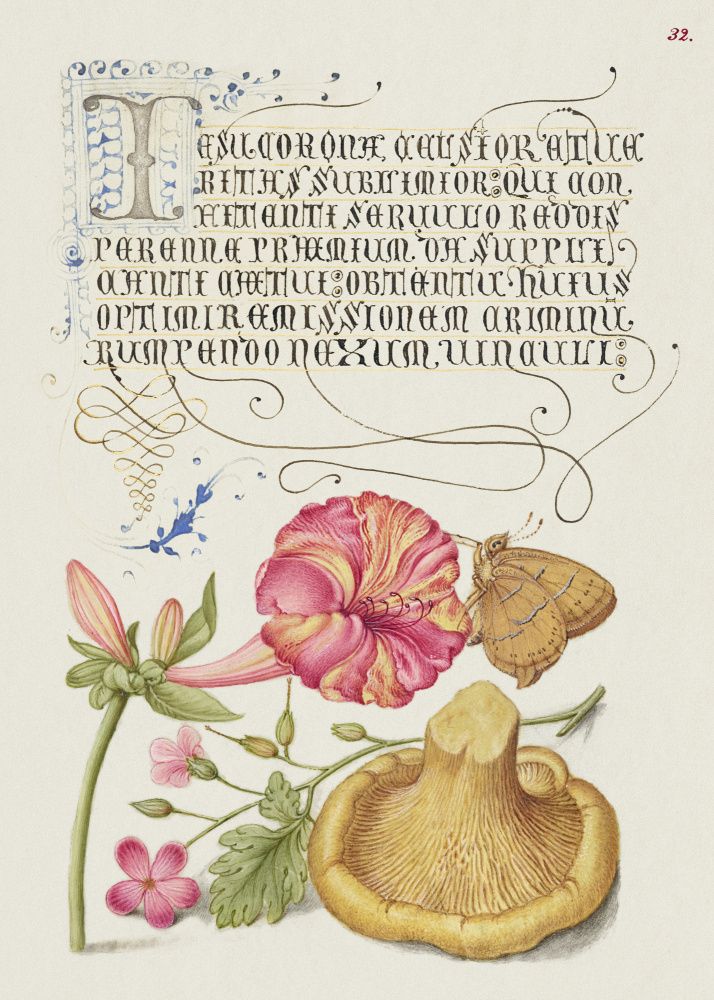 32.
IESU CORONA CELSIOR ET VE
RITAS SUBLIMIOR: QUI CON
FITENTI SERVULO REDDIS
PERENNE PRÆMIUM. DA SUPPLI
CANTI CÆTUI: OBTENTU HUIUS
OPTIMI REMISSIONEM CRIMINU
RUMPENDO NEXUM UINCULI: